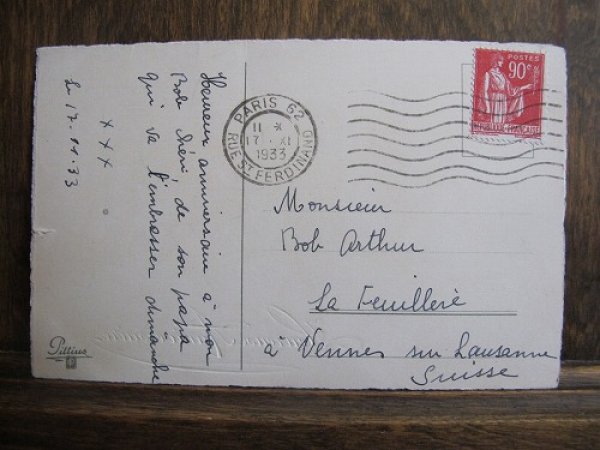 Heureux anniversaire à mon
Bob chéri, de son papa
qui va l'embrasser dimanche
x x x
Le 17.XI.33
Pittius
PARIS 62
11 *
17 . XI
1933
RUE ST FERDINAND
POSTES
90c
REPUBLIQUE FRANÇAISE
Monsieur
Bob Arthur
La Feuilleré
à Vennes sur Lausanne
Suisse